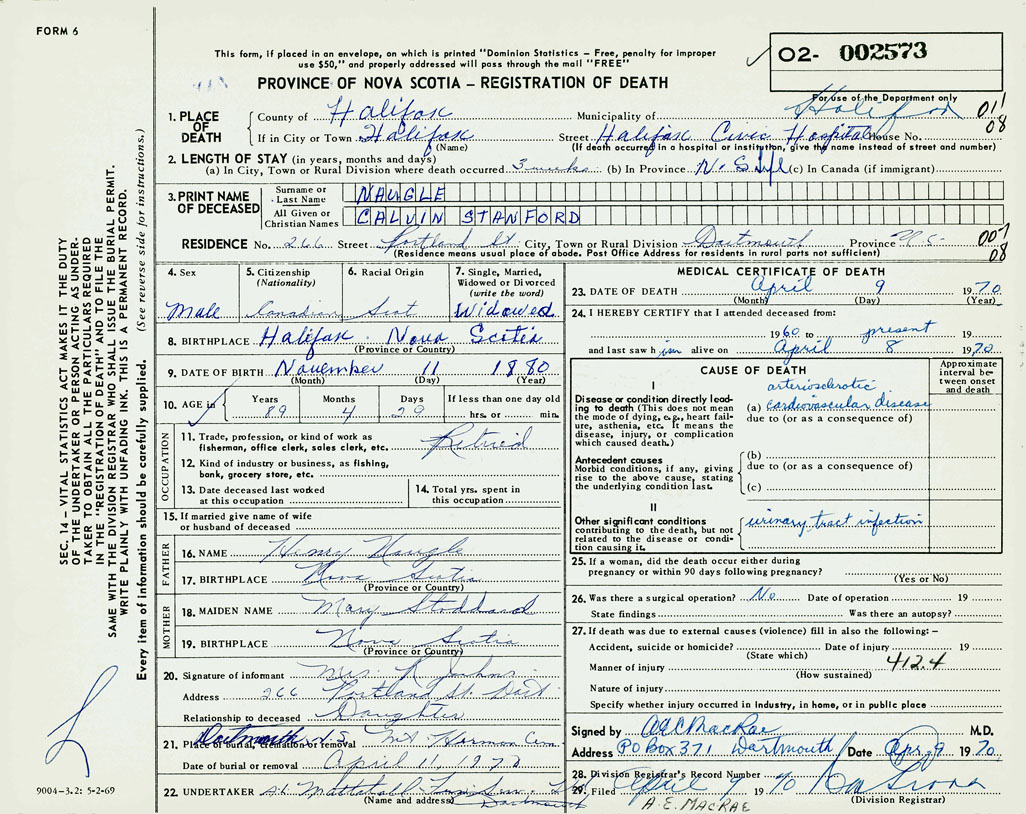 FORM 6
This form, if placed in an envelope, on which is printed "Dominion Statistics – Free, penalty for improper
use $50," and properly addressed will pass through the mail "FREE"
O2- 002573
PROVINCE OF NOVA SCOTIA – REGISTRATION OF DEATH
For use of the Department only
1. PLACE OF DEATH
County of Halifax Municipality of Halifax 011
08
If in City or Town Halifax Street Halifax Civic Hospital House No.
(Name) (If death occurred in a hospital or institution, give the name instead of street and number)
2. LENGTH OF STAY (in years, months and days)
(a) In City, Town or Rural Division where death occurred 3 weeks (b) In Province N.S. life (c) In Canada (if immigrant)
3. PRINT NAME OF DECEASED
Surname or Last Name NAUGLE
All Given or Christian Names CALVIN STANFORD
RESIDENCE No. 266 Street Portland St. City, Town or Rural Division Dartmouth Province N.S.
08
(Residence means usual place of abode. Post Office Address for residents in rural parts not sufficient)
4. Sex
Male
5. Citizenship
(Nationality)
Canadian
6. Racial Origin
Scot
7. Single, Married,
Widowed or Divorced
(write the word)
Widowed
8. BIRTHPLACE Halifax Nova Scotia
(Province or Country)
9. DATE OF BIRTH November 11 1880
(Month) (Day) (Year)
10. AGE in
Years 89
Months 4
Days 29
If less than one day old
hrs. or min.
OCCUPATION
11. Trade, profession, or kind of work as
fisherman, office clerk, sales clerk, etc. Retired
12. Kind of industry or business, as fishing,
bank, grocery store, etc.
13. Date deceased last worked
at this occupation
14. Total yrs. spent in
this occupation
15. If married give name of wife
or husband of deceased
FATHER
16. NAME Henry Naugle
17. BIRTHPLACE Nova Scotia
(Province or Country)
MOTHER
18. MAIDEN NAME Mary Stoddard
19. BIRTHPLACE Nova Scotia
(Province or Country)
20. Signature of informant Mrs. R
Address 266 Portland St. Dart.
Relationship to deceased Daughter
21. Place of burial, cremation or removal Dartmouth N.S. Mt. Hermon Cem.
Date of burial or removal April 11, 1970
22. UNDERTAKER
(Name and address) Dartmouth
MEDICAL CERTIFICATE OF DEATH
23. DATE OF DEATH April 9 1970
(Month) (Day) (Year)
24. I HEREBY CERTIFY that I attended deceased from:
1960 to present 19
and last saw him alive on April 8 1970
CAUSE OF DEATH
Approximate
interval be-
tween onset
and death
I
Disease or condition directly lead-
ing to death (This does not mean
the mode of dying, e.g., heart fail-
ure, asthenia, etc. It means the
disease, injury, or complication
which caused death.)
arteriosclerotic
(a) cardiovascular disease
due to (or as a consequence of)
Antecedent causes
Morbid conditions, if any, giving
rise to the above cause, stating
the underlying condition last.
(b)
due to (or as a consequence of)
(c)
II
Other significant conditions
contributing to the death, but not
related to the disease or condi-
tion causing it.
urinary tract infection
25. If a woman, did the death occur either during
pregnancy or within 90 days following pregnancy?
(Yes or No)
26. Was there a surgical operation? No Date of operation 19
State findings Was there an autopsy?
27. If death was due to external causes (violence) fill in also the following: –
Accident, suicide or homicide? Date of injury 19
(State which)
Manner of injury 412.4
(How sustained)
Nature of injury
Specify whether injury occurred in Industry, in home, or in public place
Signed by A E MacRae M.D.
Address PO Box 371 Dartmouth Date Apr. 9 1970
28. Division Registrar's Record Number
29. Filed April 9 1970
A. E. MACRAE (Division Registrar)
SEC. 14 – VITAL STATISTICS ACT MAKES IT THE DUTY
OF THE UNDERTAKER OR PERSON ACTING AS UNDER-
TAKER TO OBTAIN ALL THE PARTICULARS REQUIRED
IN THE "REGISTRATION OF DEATH" AND TO FILE THE
SAME WITH THE DIVISION REGISTRAR WHO SHALL ISSUE THE BURIAL PERMIT.
WRITE PLAINLY WITH UNFADING INK. THIS IS A PERMANENT RECORD.
Every item of information should be carefully supplied. (See reverse side for instructions.)
9004-3.2: 5-2-69